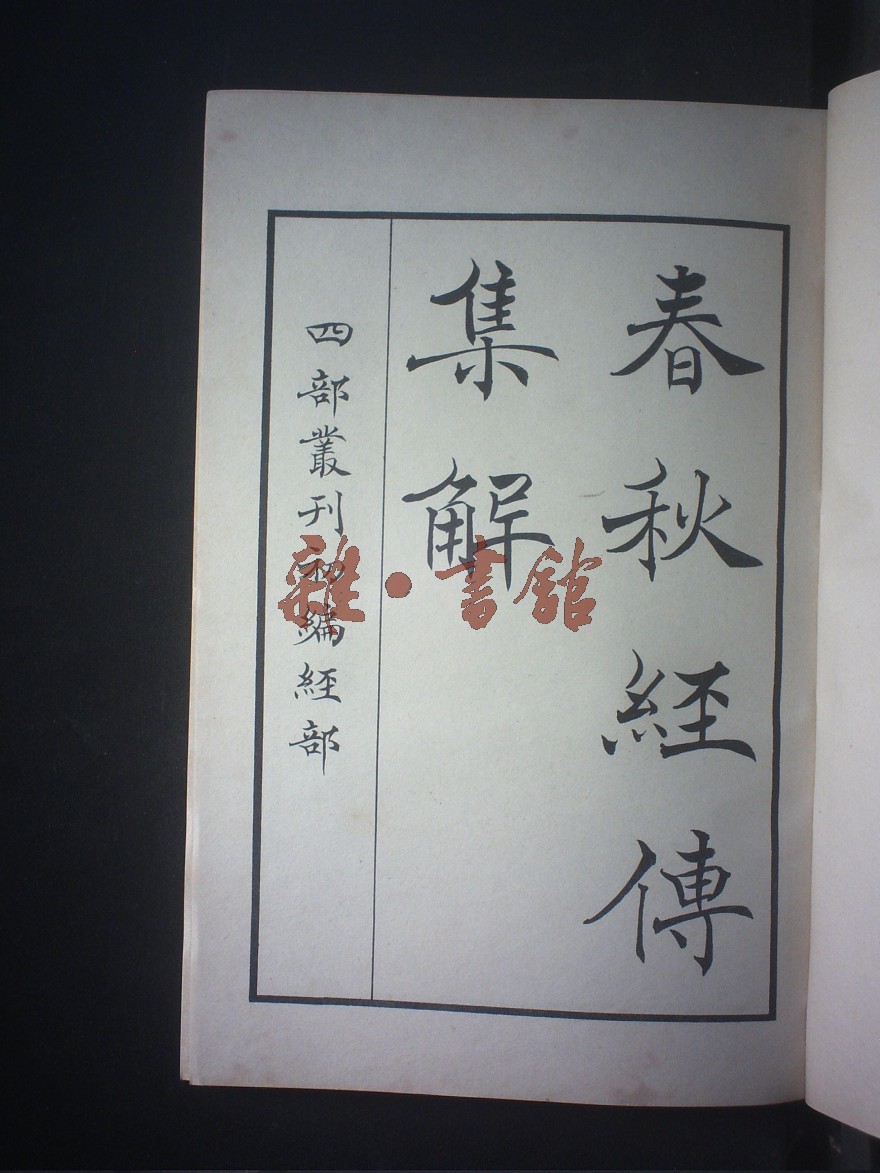 春秋經傳
集解
四部叢刊初編經部
雜·書館